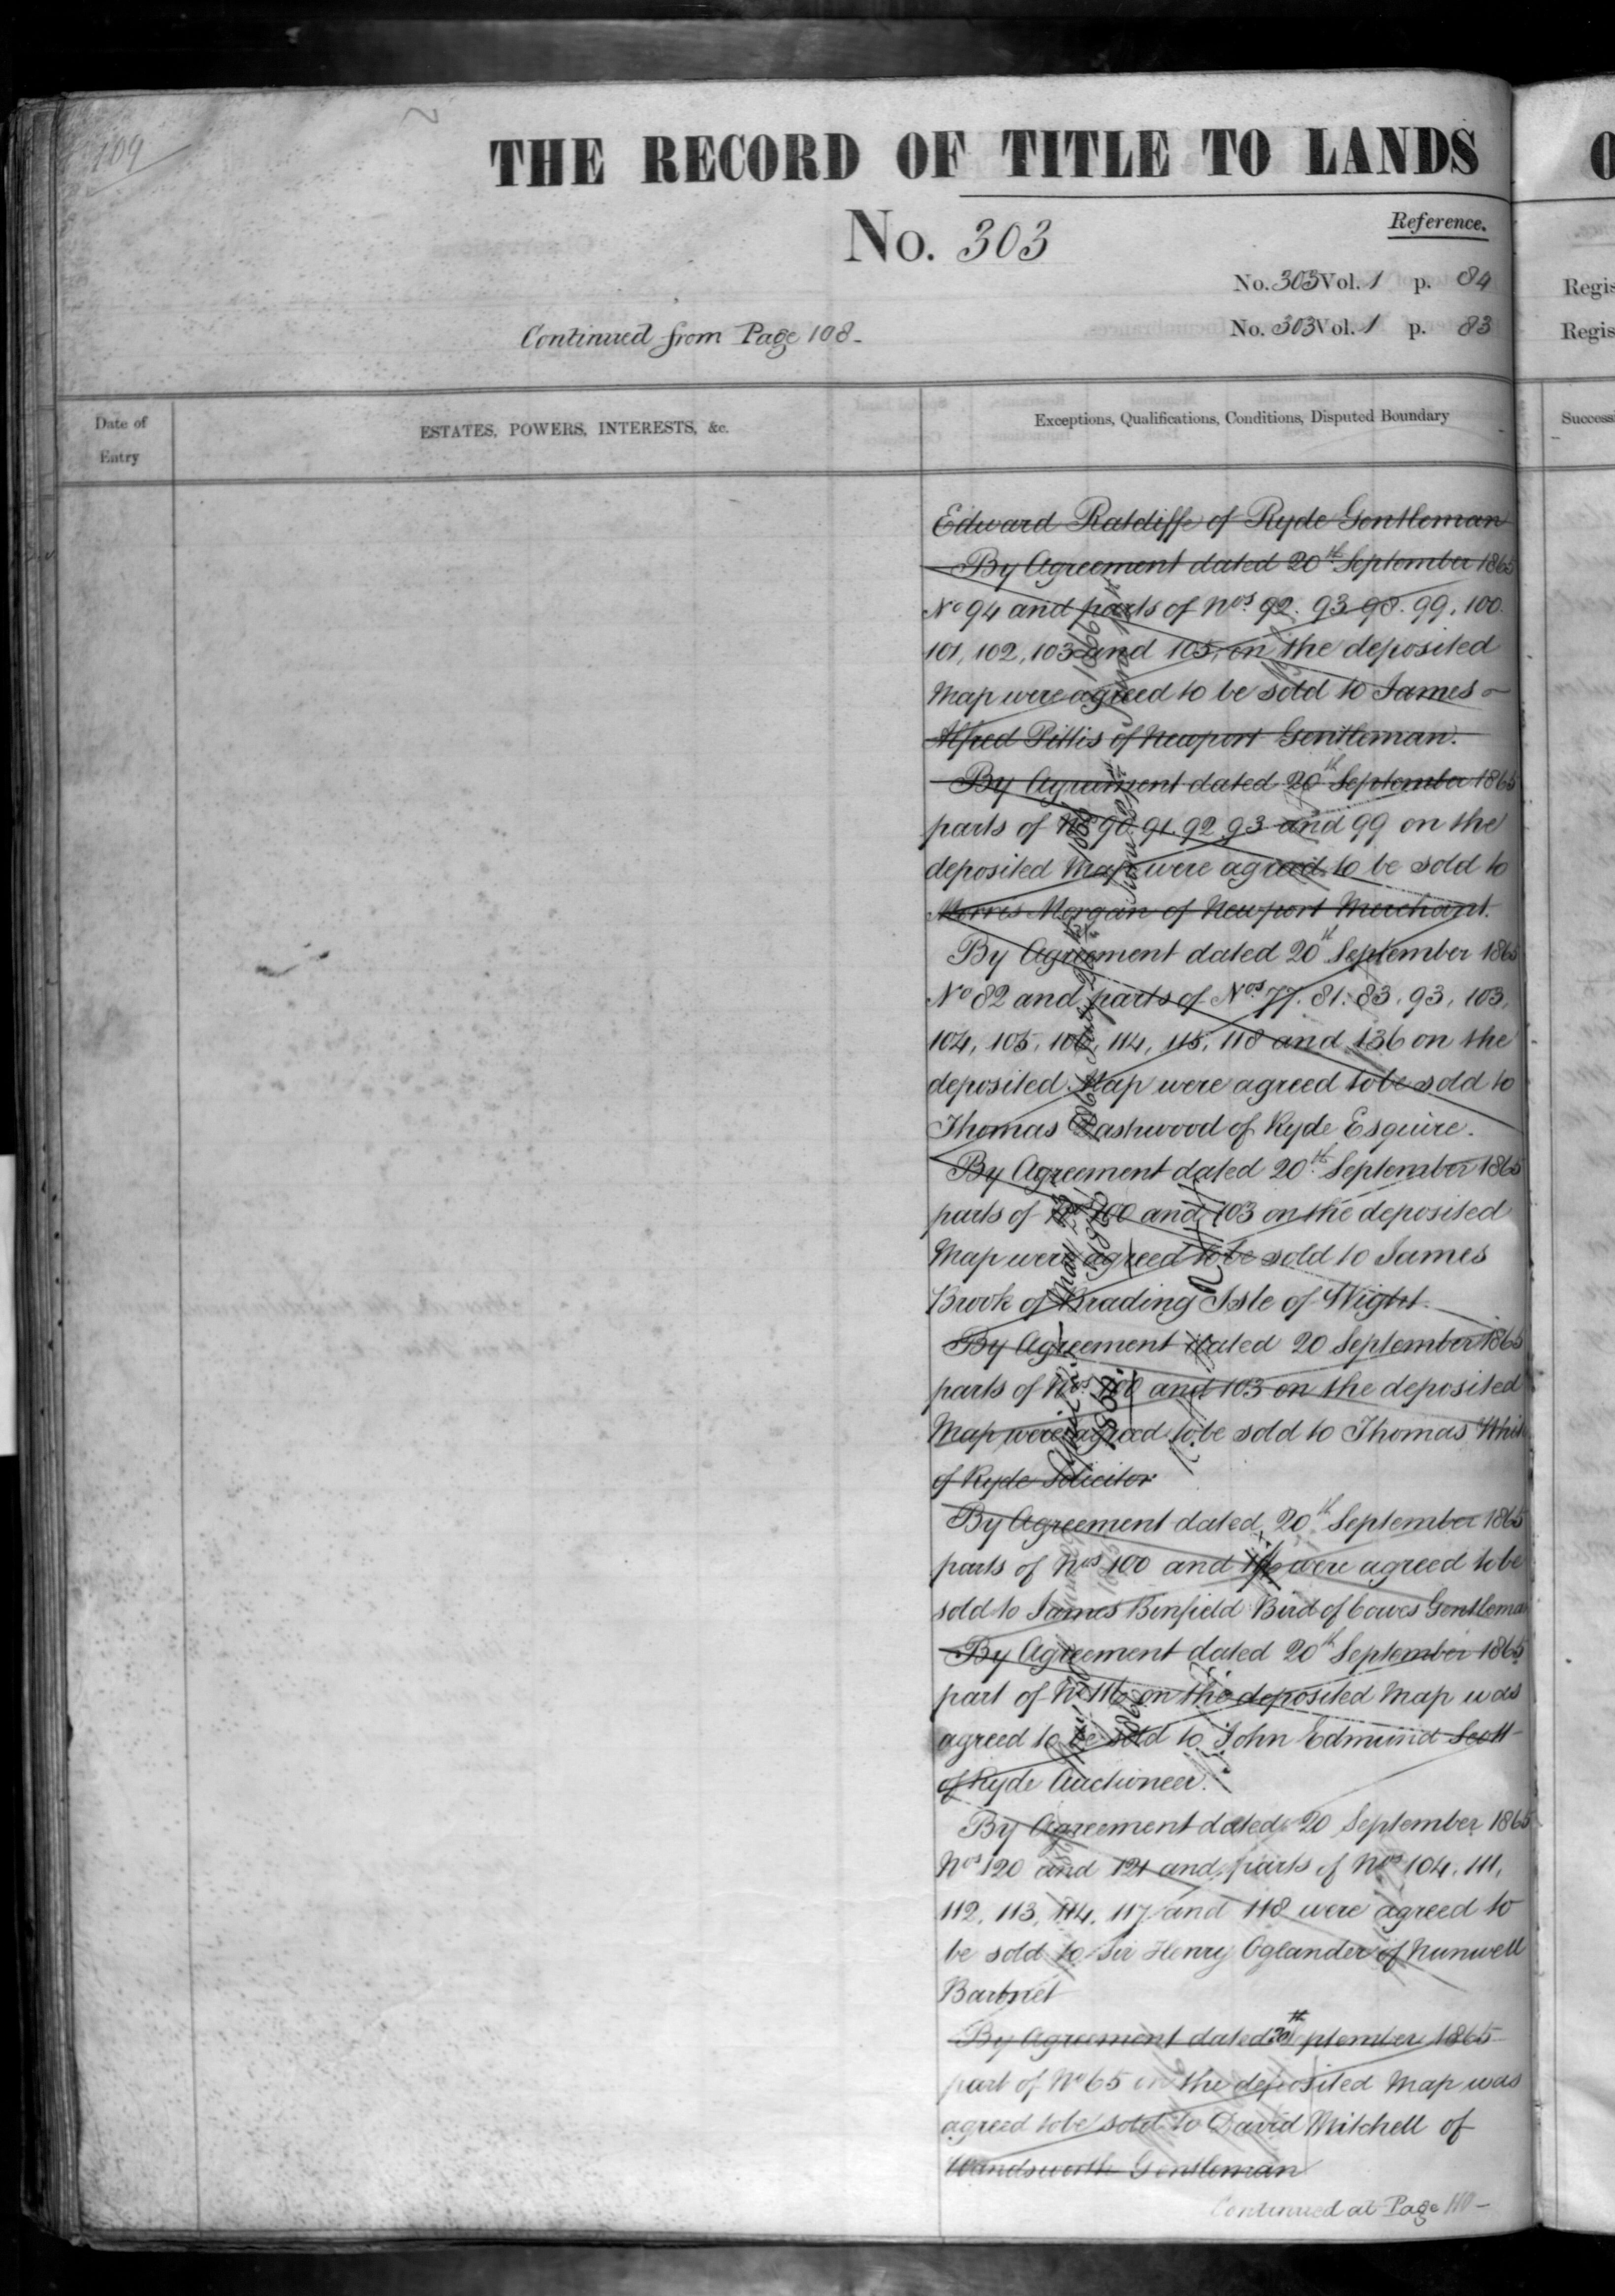 109
THE RECORD OF TITLE TO LANDS
No. 303
Reference.
No. 303 Vol. 1 p. 84
No. 303 Vol. 1 p. 83
Continued from Page 108-
Date of Entry
ESTATES, POWERS, INTERESTS, &c.
Exceptions, Qualifications, Conditions, Disputed Boundary
Edward Ratcliffe of Ryde Gentleman
By Agreement dated 20th September 1865
No 94 and parts of Nos. 92. 93 98. 99, 100.
101, 102, 103 and 105, on the deposited
Map were agreed to be sold to James
Alfred Pittis of Newport Gentleman.
By Agreement dated 20th September 1865
parts of Nos 90. 91. 92. 93 and 99 on the
deposited Map were agreed to be sold to
Morris Morgan of Newport Merchant.
By Agreement dated 20th September 1865
No 82 and parts of Nos. 77. 81. 83. 93, 103,
104, 105, 106, 114, 115, 118 and 136 on the
deposited Map were agreed to be sold to
Thomas Dashwood of Ryde Esquire.
By Agreement dated 20th September 1865
parts of Nos 100 and 103 on the deposited
Map were agreed to be sold to James
Brook of Brading Isle of Wight.
By Agreement dated 20 September 1865
parts of Nos. 100 and 103 on the deposited
Map were agreed to be sold to Thomas
of Ryde Solicitor
By Agreement dated 20th September 1865
parts of Nos 100 and were agreed to be
sold to James Binfield Bird of Cowes Gentleman
By Agreement dated 20th September 1865
part of No 116 on the deposited Map was
agreed to be sold to John Edmund Scott
of Ryde Auctioneer.
By Agreement dated 20 September 1865
Nos 120 and 121 and parts of Nos 104. 111,
112, 113, 114, 117 and 118 were agreed to
be sold to Sir Henry Oglander of Nunwell
Baronet
By Agreement dated 20th September 1865
part of No 65 on the deposited Map was
agreed to be sold to David Mitchell of
Wandsworth Gentleman
Continued at Page 110-
O
Regis
Regis
Success